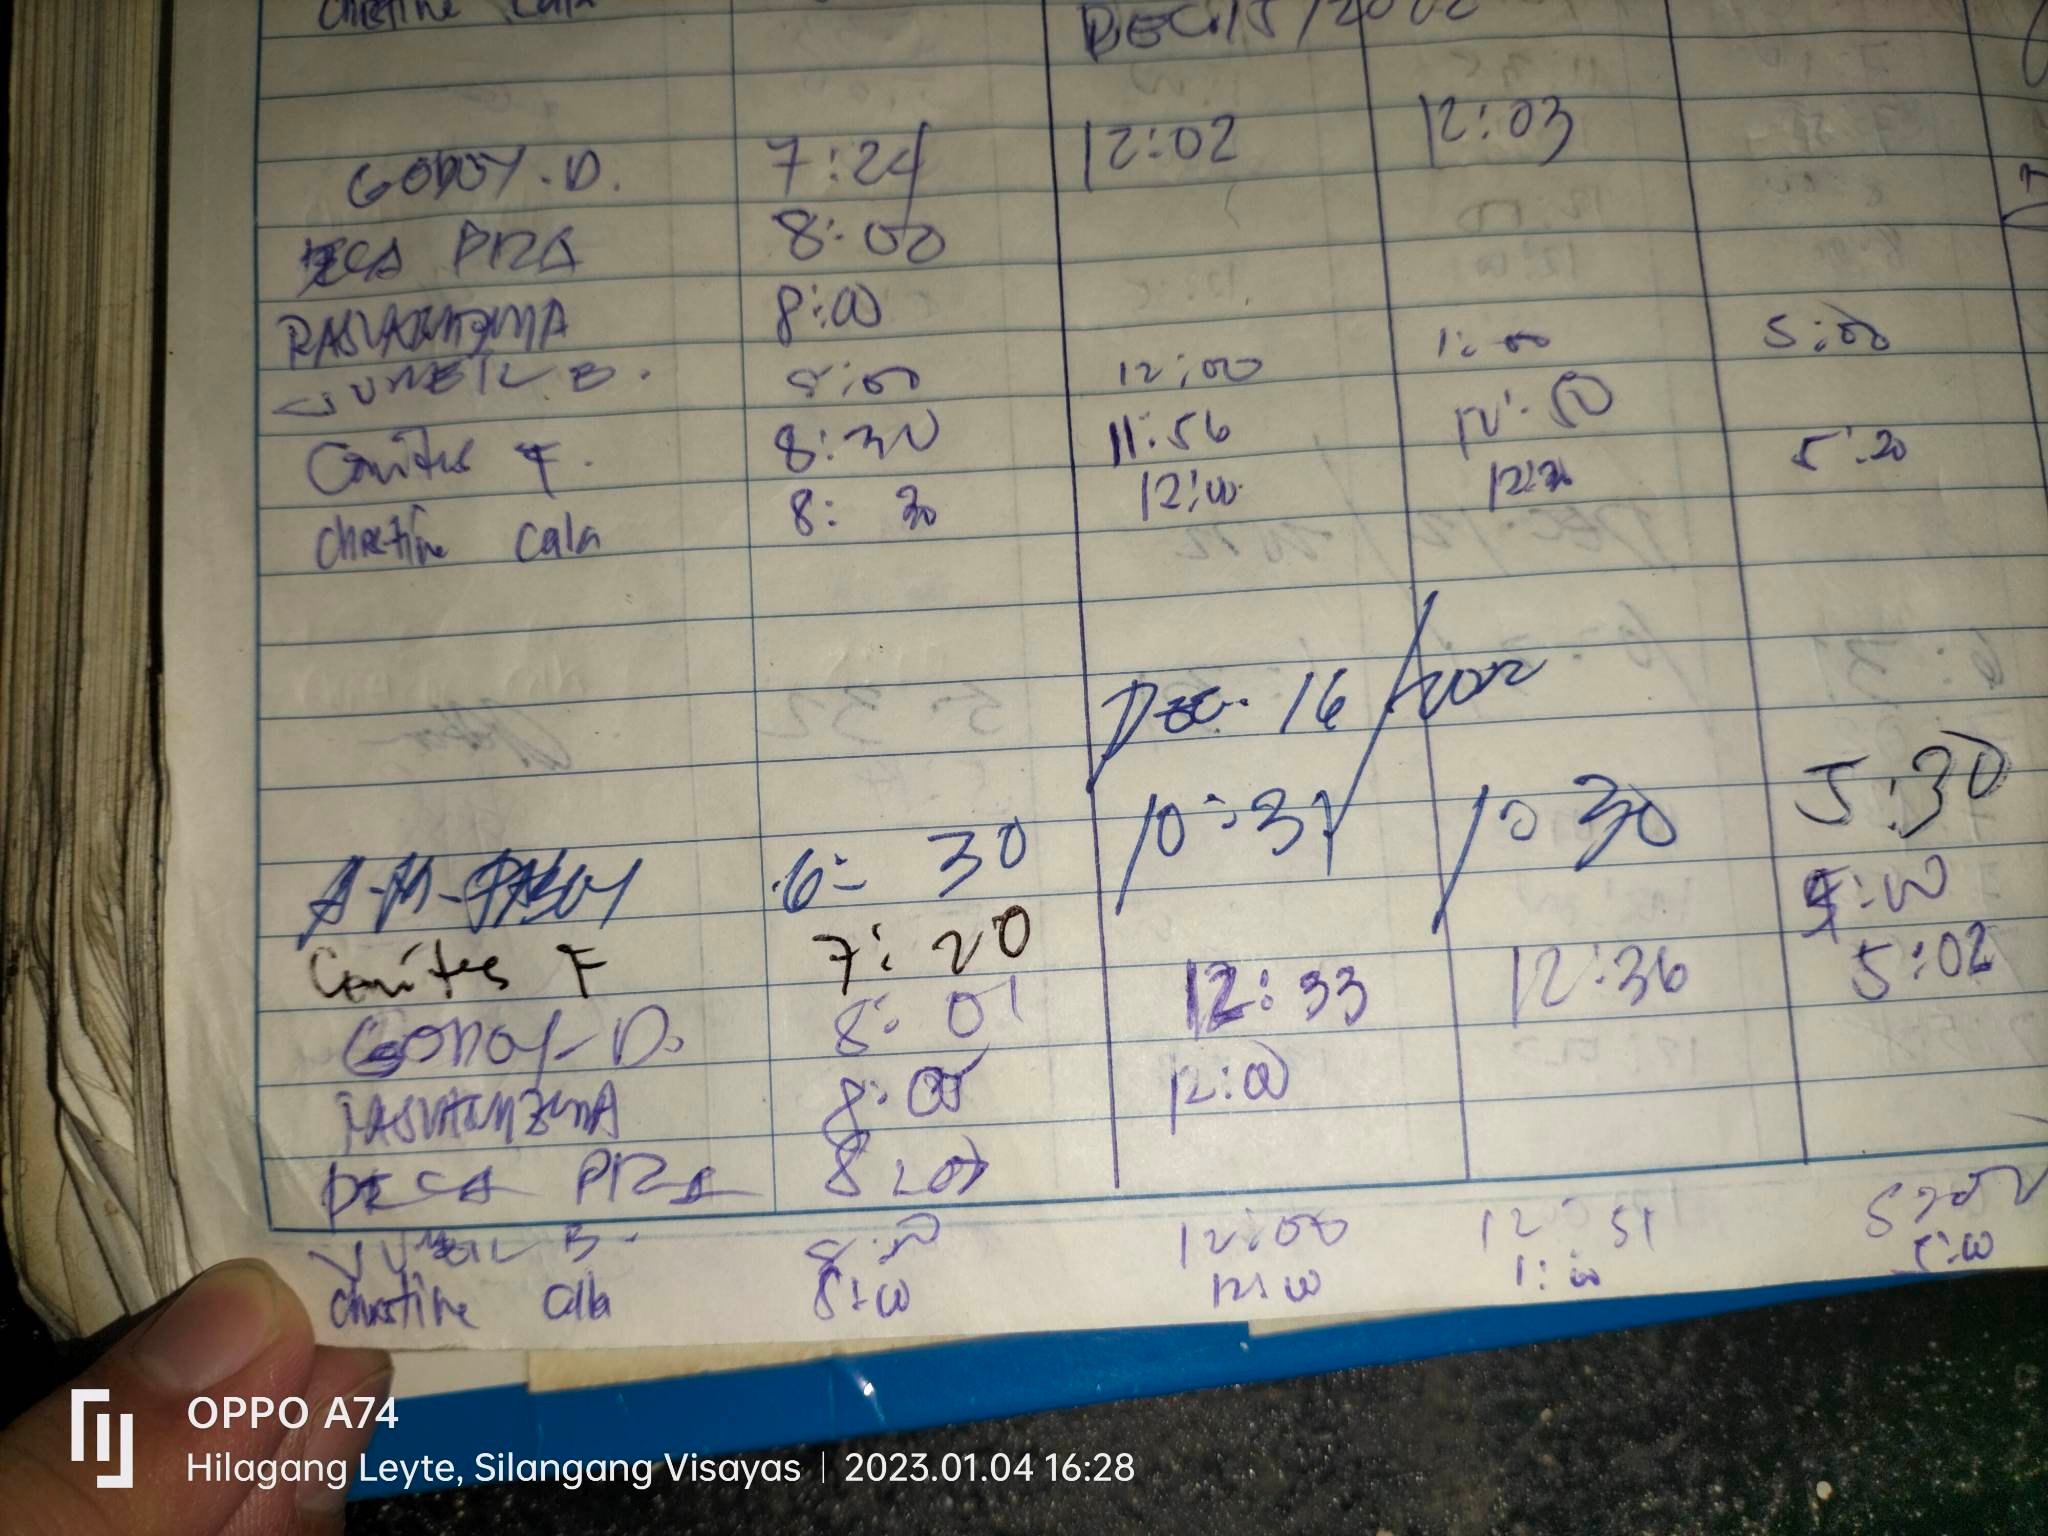 Christine Cala
DEC. 15/2022
GODOY. D. 7:24 12:02 12:03
PIZA 8:00
8:00
JUNEIL B. 8:00 12:00 1:00 5:00
Conites F. 8:30 11:56 12:50
Christine Cala 8: 30 12:00 12:30 5:20
DEC. 16/2022
6: 30 10:31 1: 30 5:30
Conites F 7: 20 5:00
GODOY- D. 8: 01 12:33 12:36 5:02
8:00 12:00
DECA PIZA 8:00
JUNEIL B. 8:00 12:00 12:51
Christine Cala 8:00 12:00 1:00 5:00
OPPO A74
Hilagang Leyte, Silangang Visayas | 2023.01.04 16:28